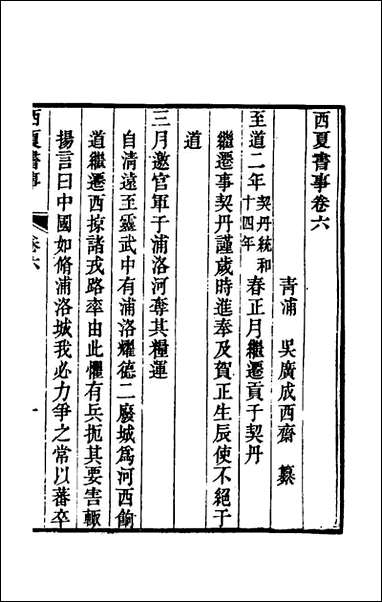 西夏書事卷六
青浦　吳廣成西齋　纂
至道二年契丹統和十四年春正月繼遷貢于契丹
繼遷事契丹謹歲時進奉及賀正生辰使不絕于
道
三月邀官軍于浦洛河奪其糧運
自清遠至靈武中有浦洛耀德二廢城為河西餉
道繼遷西掠諸戎路率由此懼有兵扼其要害輙
揚言曰中國如脩浦洛城我必力爭之常以蕃卒
西夏書事
卷六
一